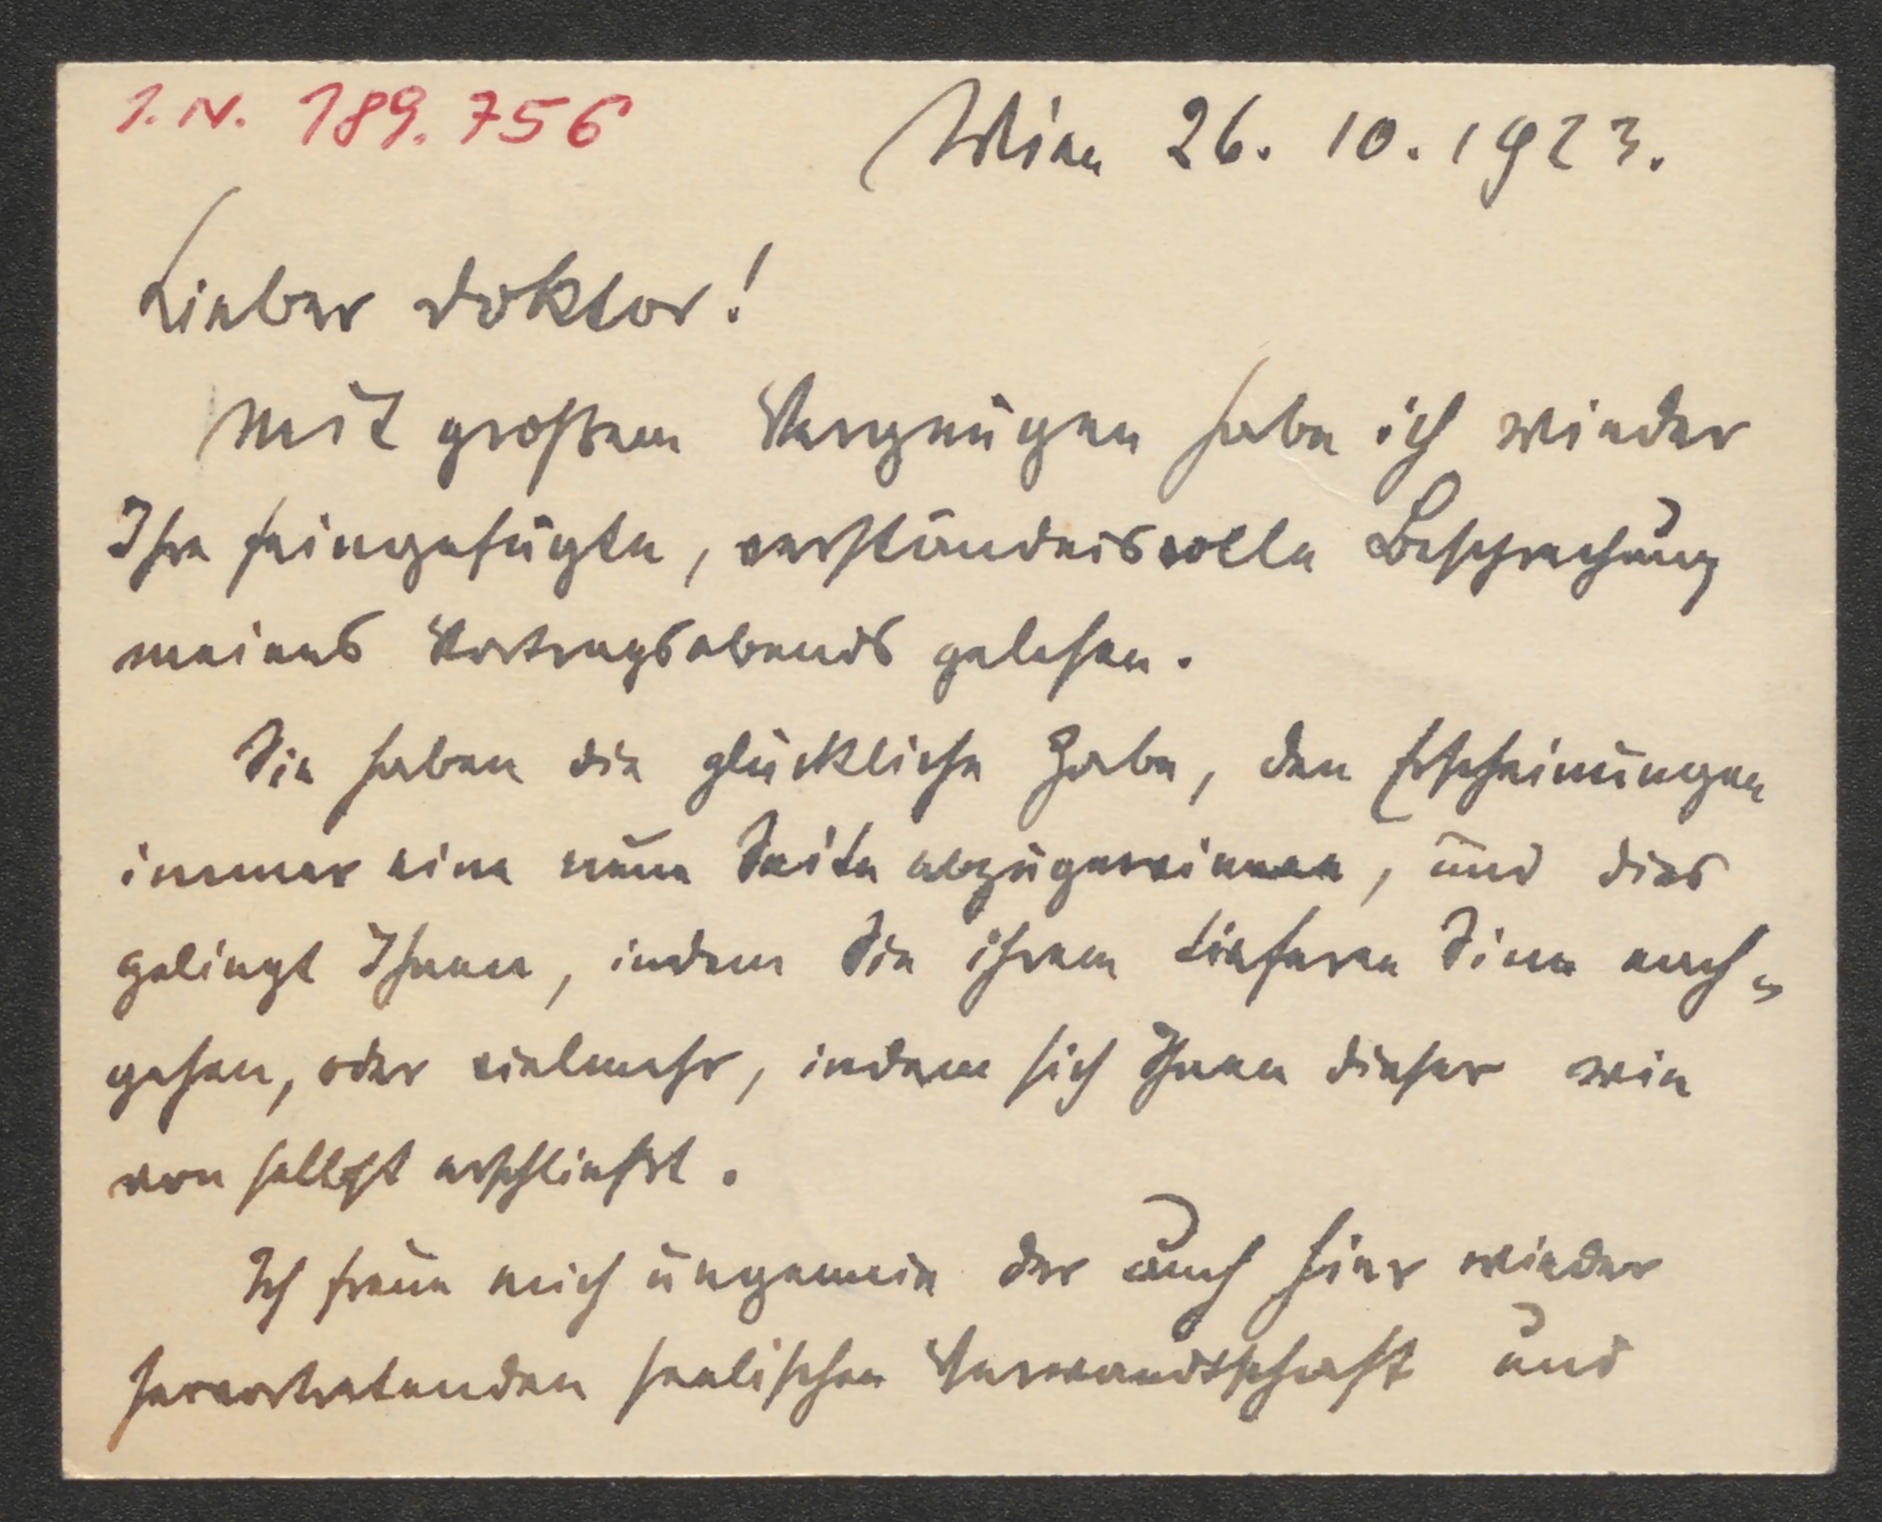 I.N. 189.756
Wien 26. 10. 1923.
Lieber Doktor!
Mit großem Vergnügen habe ich wieder
Ihre feingefügte, verständnisvolle Besprechung
meines Vortragsabends gelesen.
Sie haben die glückliche Gabe, den Erscheinungen
immer eine neue Seite abzugewinnen, und dies
gelingt Ihnen, indem Sie ihrem tieferen Sinn nach-
gehen, oder vielmehr, indem sich Ihnen dieser wie
von selbst erschließt.
Ich freue mich ungemein der auch hier wieder
hervortretenden seelischen Verwandtschaft und